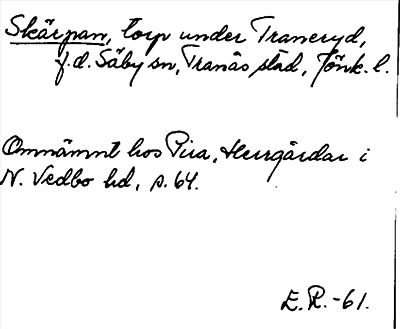 Skärpan, torp under Traneryd,
f.d. Säby sn, Tranås stad, Jönk. l.
Omnämnt hos Pira, Herrgårdar i
N. Vedbo hd, s. 64.
E.R.-61.